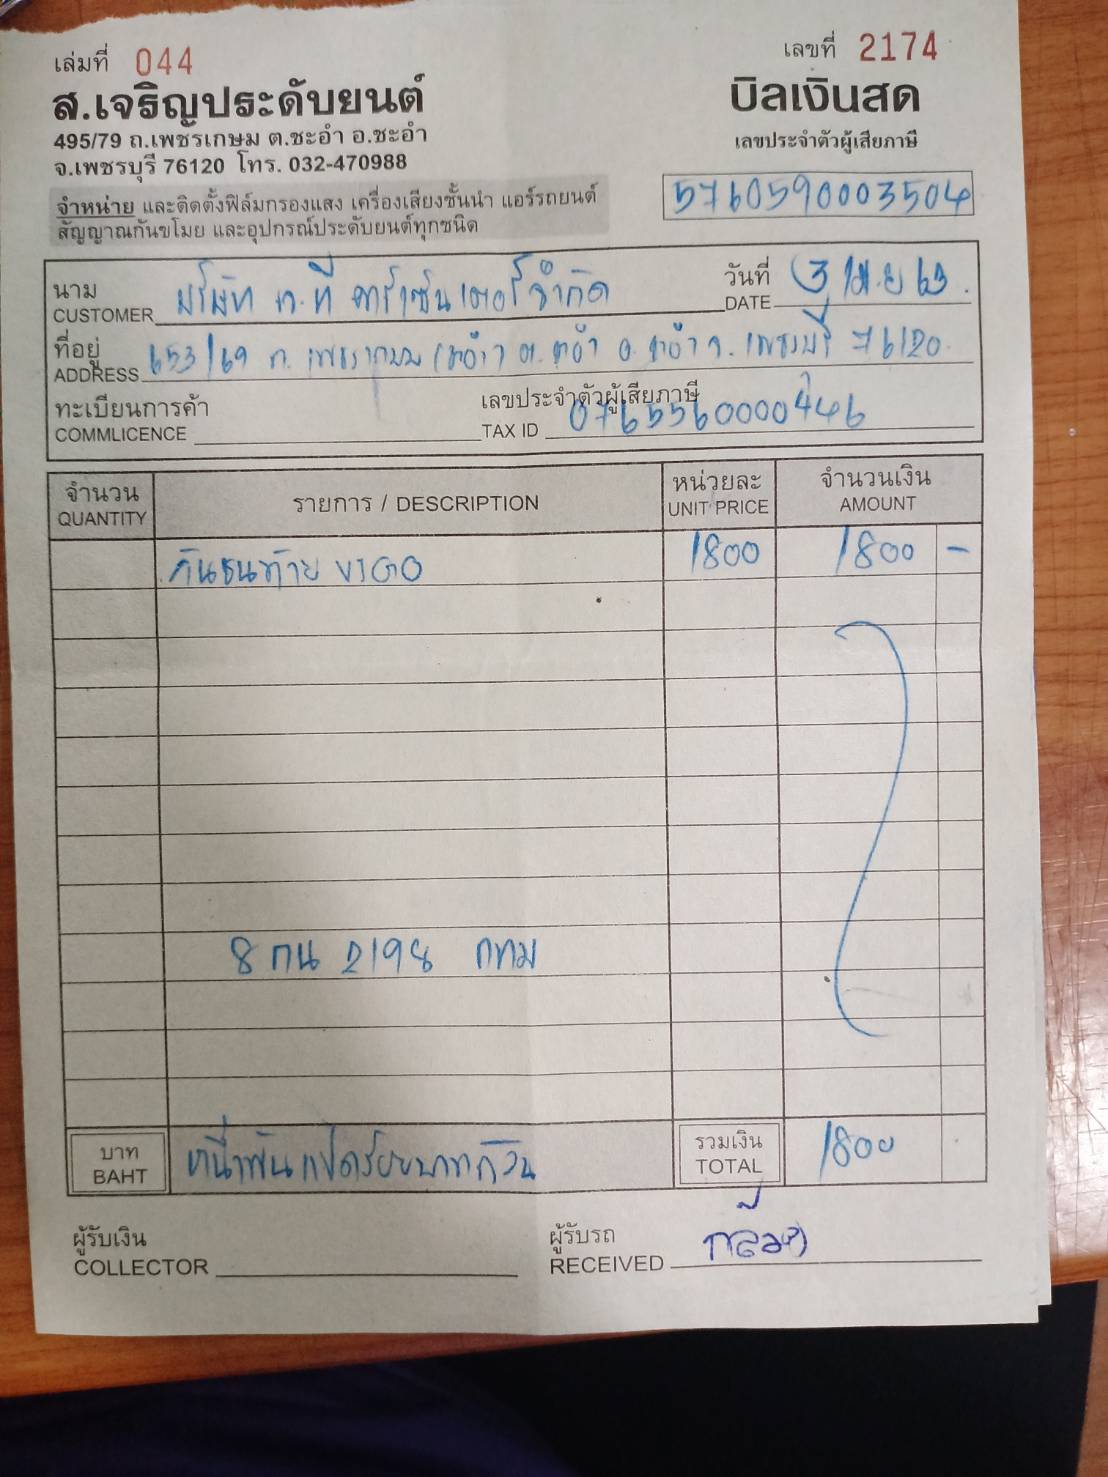 เล่มที่ 044
เลขที่ 2174
ส.เจริญประดับยนต์
บิลเงินสด
495/79 ถ.เพชรเกษม ต.ชะอำ อ.ชะอำ
จ.เพชรบุรี 76120 โทร. 032-470988
เลขประจำตัวผู้เสียภาษี
5760590003504
จำหน่าย และติดตั้งฟิล์มกรองแสง เครื่องเสียงชั้นนำ แอร์รถยนต์
สัญญาณกันขโมย และอุปกรณ์ประดับยนต์ทุกชนิด
นาม บริษัท ท.ที คาร์เซ็นเตอร์ จำกัด
CUSTOMER
วันที่ 3 เม.ย 63.
DATE
ที่อยู่ 653/69 ถ. เพชรเกษม ต.ชะอำ อ.ชะอำ จ. เพชรบุรี 76120.
ADDRESS
ทะเบียนการค้า
COMMLICENCE
เลขประจำตัวผู้เสียภาษี
TAX ID 0765560000446
จำนวน รายการ / DESCRIPTION หน่วยละ จำนวนเงิน
QUANTITY UNIT PRICE AMOUNT
กันชนท้าย VIGO 1800 1800 -
8 กน 2198 กทม
บาท หนึ่งพันแปดร้อยบาทถ้วน รวมเงิน 1800
BAHT TOTAL
ผู้รับเงิน ผู้รับรถ
COLLECTOR RECEIVED